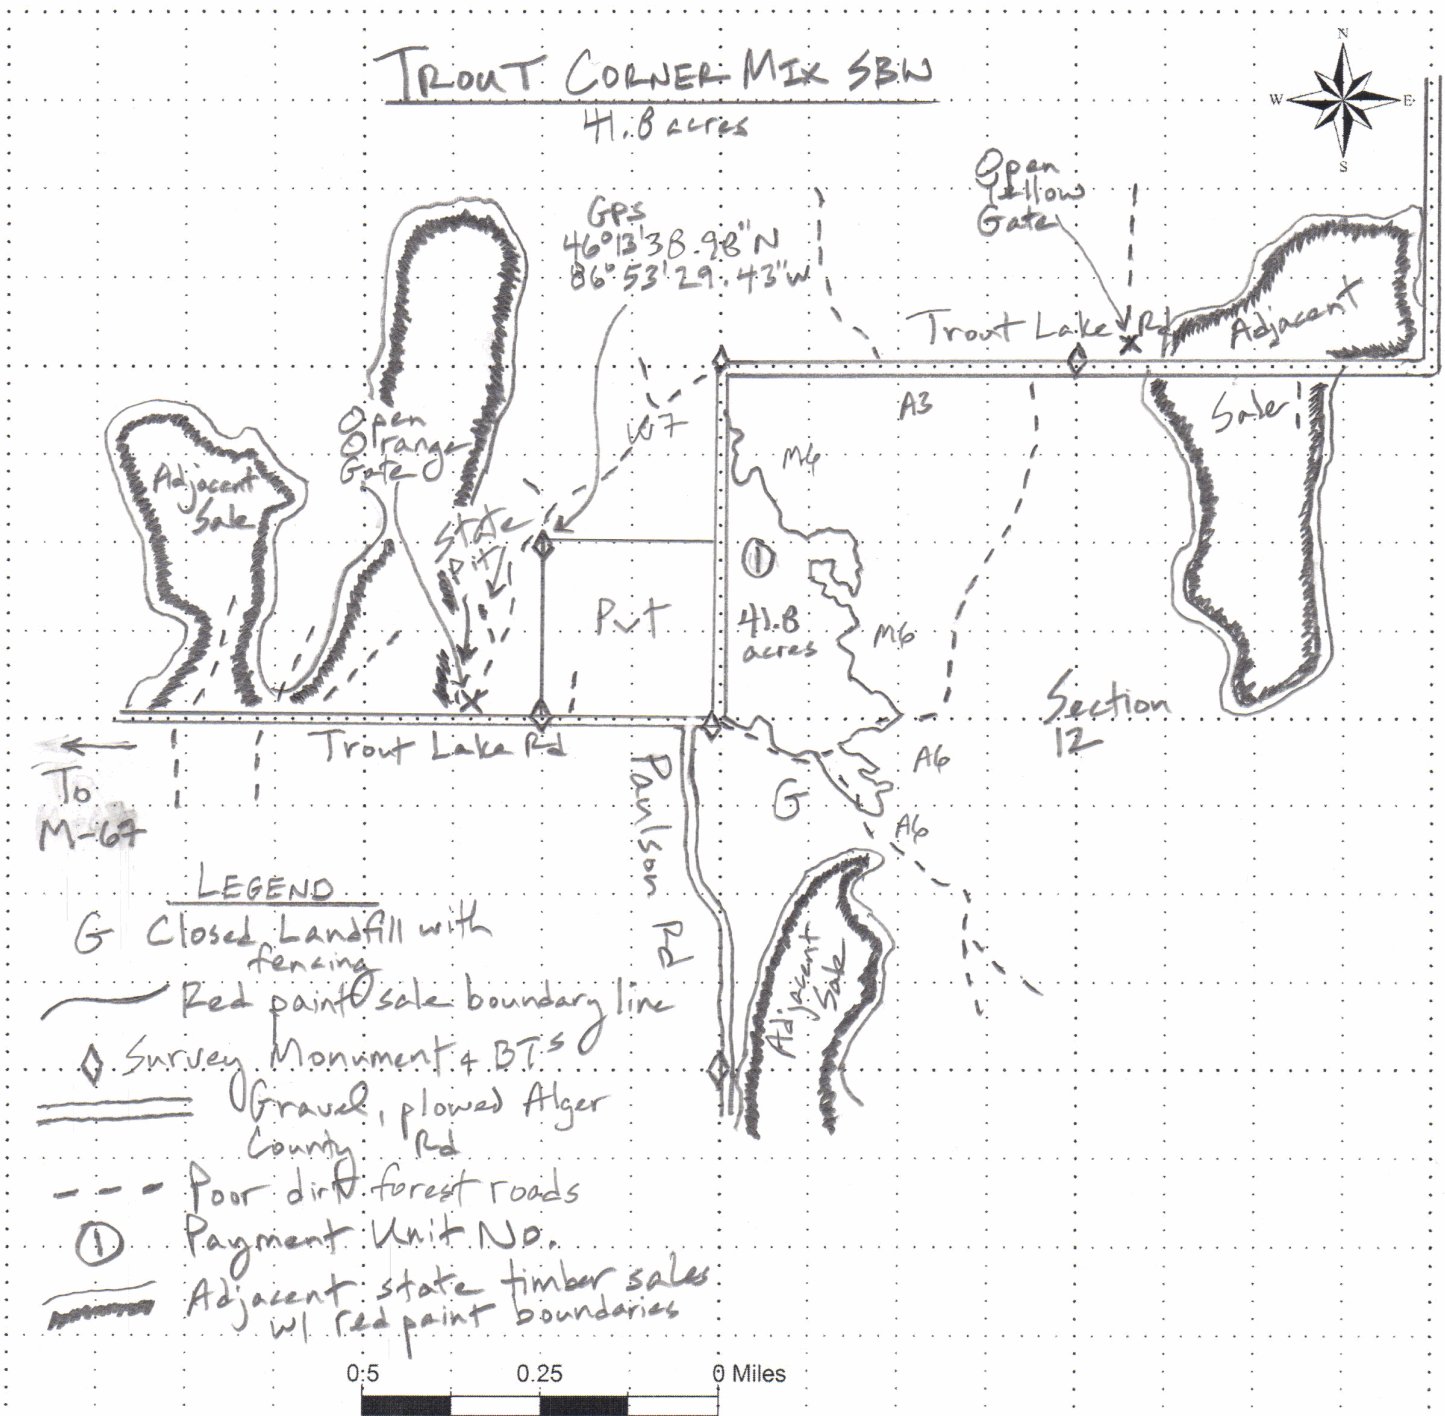 TROUT CORNER MIX SBW
41.8 acres
N
W E
S
Open
Yellow
Gate
GPS
46°13'38.98"N
86°53'29.43"W
Trout Lake Rd
Adjacent
Sale
A3
W7
M6
Open
Orange
Gate
Adjacent
Sale
State
pit
1
41.8
acres
Pvt
M6
Section
12
Trout Lake Rd
To
M-67
Paulson Rd
G
A6
A6
Adjacent
Sale
LEGEND
G Closed Landfill with
fencing
Red paint sale boundary line
Survey Monument & BTs
Gravel, plowed Alger
County Rd
Poor dirt forest roads
1 Payment Unit No.
Adjacent state timber sales
w/ red paint boundaries
0.5 0.25 0 Miles